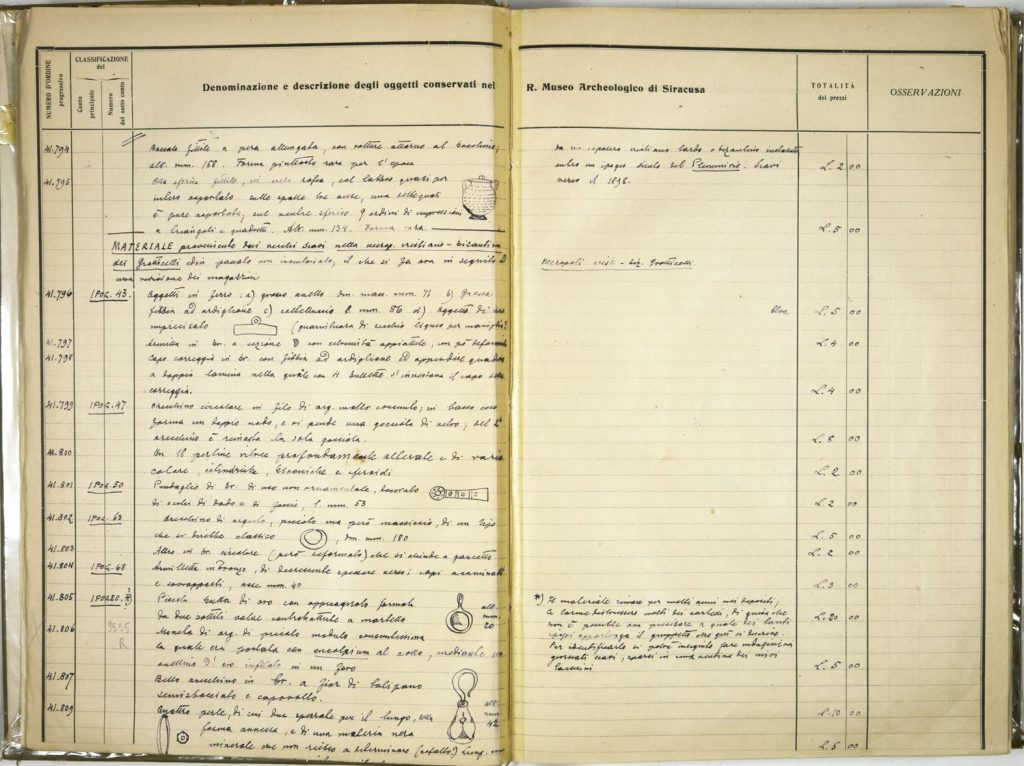 NUMERO D'ORDINE progressivo
CLASSIFICAZIONE del
Conto principale
Numero del sotto conto
Denominazione e descrizione degli oggetti conservati nel R. Museo Archeologico di Siracusa
TOTALITÀ dei prezzi
OSSERVAZIONI
41.794 Boccale fittile a pera allungata, con rotture attorno al
alt. mm. 158. Forma piuttosto rara per l'epoca
da un sepolcro cristiano tardo o bizantino
entro un ipogeo siculo del Plemmirio. Scavi L. 2 00
verso il 1898.
41.795 Olla sferica fittile, in creta rossa, col labbro quasi per
intero asportato sulle spalle tre anse, una delle quali
è pure asportata; sul ventre sferico 9 ordini di impressioni
a triangoli e quadretti. Alt. mm. 134. Forma rara. L. 5 00
MATERIALE proveniente dai vecchi scavi nella necrop. cristiano-bizantina
dei Grotticelli ed in passato non inventariato, il che si fa ora in seguito a
una revisione dei magazzini
Necropoli crist.-biz. Grotticelli.
41.796 IPOG. 43. Oggetti in ferro: a) grosso anello dm. mass. mm. 71 b) Grossa
fibbia ad ardiglione c) coltelluccio l. mm. 86 d) Oggetto di uso
imprecisato (guarnitura di cerchio ligneo per maniglia?) L. 5 00
41.797 Armilla in br. a sezione con estremità appiattite, un pò deformata L. 4 00
41.798 Capo correggia in br. con fibbia ad ardiglione ed appendice quadra
a doppia lamina nella quale con 4 bullette s'innestava il capo della
correggia. L. 4 00
41.799 IPOG. 47 Orecchino circolare in filo di arg. molto consunto; in basso esso
forma un doppio nodo, e vi pende una gocciola di vetro; del 2°
orecchino è rimasta la sola gocciola. L. 8 00
41.800 N. 16 perline vitree profondamente alterate e di vario
colore, cilindriche, biconiche e sferoidi L. 2 00
41.801 IPOG. 50 Pendaglio di br. di uso non ornamentale, decorato
di occhi di dado e di fascie, l. mm. 53 L. 2 00
41.802 IPOG. 63 Orecchino di argento, piccolo ma però massiccio, di un tipo
che si direbbe classico , dm. mm. 180 L. 5 00
41.803 Altro in br. circolare (però deformato) che si chiude a gancetto L. 2 00
41.804 IPOG. 68 Armilletta in bronzo, di decrescente spessore verso i capi acuminati
e sovrapposti, asse mm. 40 L. 3 00
41.805 IPOGEO. *) ? Piccola bulla di oro con appiccagnolo formata
da due sottili valve controbattute a martello alt. mm. 20 L. 20 00
41.806 9535 R Moneta di arg. di piccolo modulo consuntissima
la quale era portata con encolpium al collo, mediante un
anellino d'oro infilato in un foro L. 5 00
*) Il materiale rimase per molti anni nei depositi;
le tarme distrussero molti dei cartelli, di guisa che
non è possibile ora precisare a quale dei tanti
ipogei appartenga il gruppetto che qui si descrive.
Per identificarlo si potrà in seguito fare
giornali scavi, sparsi in una ventina dei miei
taccuini
41.807 Bello orecchino in br. a fior di tulipano
semisbocciato e capovolto. alt. mm. 42 L. 10 00
41.809 Quattro perle, di cui due sperrate per il lungo, della
forma annessa, e di una materia nera
minerale che non riesco a determinare (asfalto?) Lung. mm L. 5 00